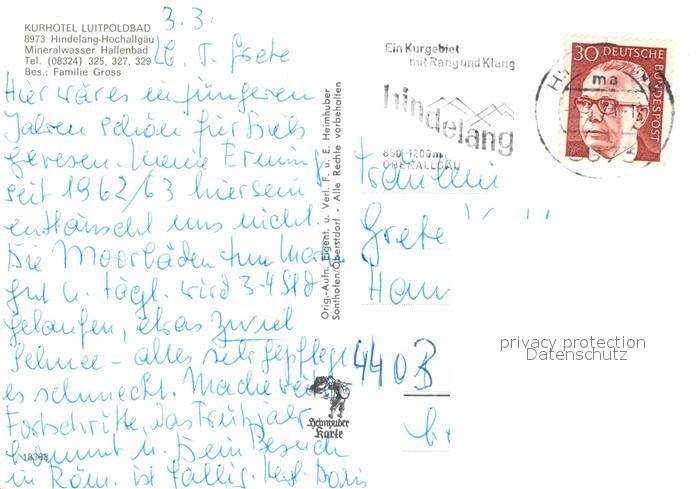 KURHOTEL LUITPOLDBAD
8973 Hindelang-Hochallgäu
Mineralwasser Hallenbad
Tel. (08324) 325, 327, 329
Bes.: Familie Gross
3.3.
Lb. T. Grete
Hier wäre es in jüngeren
Jahren schön für Dich
gewesen. Meine Erinnng
seit 1962/63 hiersein
enttäuscht uns nicht.
Die Moorbäder tun
gut u. tägl. wird 3-4 Std
gelaufen, etwas zuviel
Schnee - alles sehr gepflegt
es schmeckt. Mache
Fortschritte, das Frühjahr
kommt u. Dein Besuch
in Röm. ist fällig. Hzgl. Doris
18368
Orig.-Aufn. Eigent. u. Verl. F. u. E. Heimhuber
Sonthofen/Oberstdorf - Alle Rechte vorbehalten
Heimhuber
Karte
Ein Kurgebiet
mit Rang und Klang
hindelang
850-1200m
OBERALLGÄU
30 DEUTSCHE
BUNDESPOST
ma
Fräulein
Grete
440B
privacy protection
Datenschutz